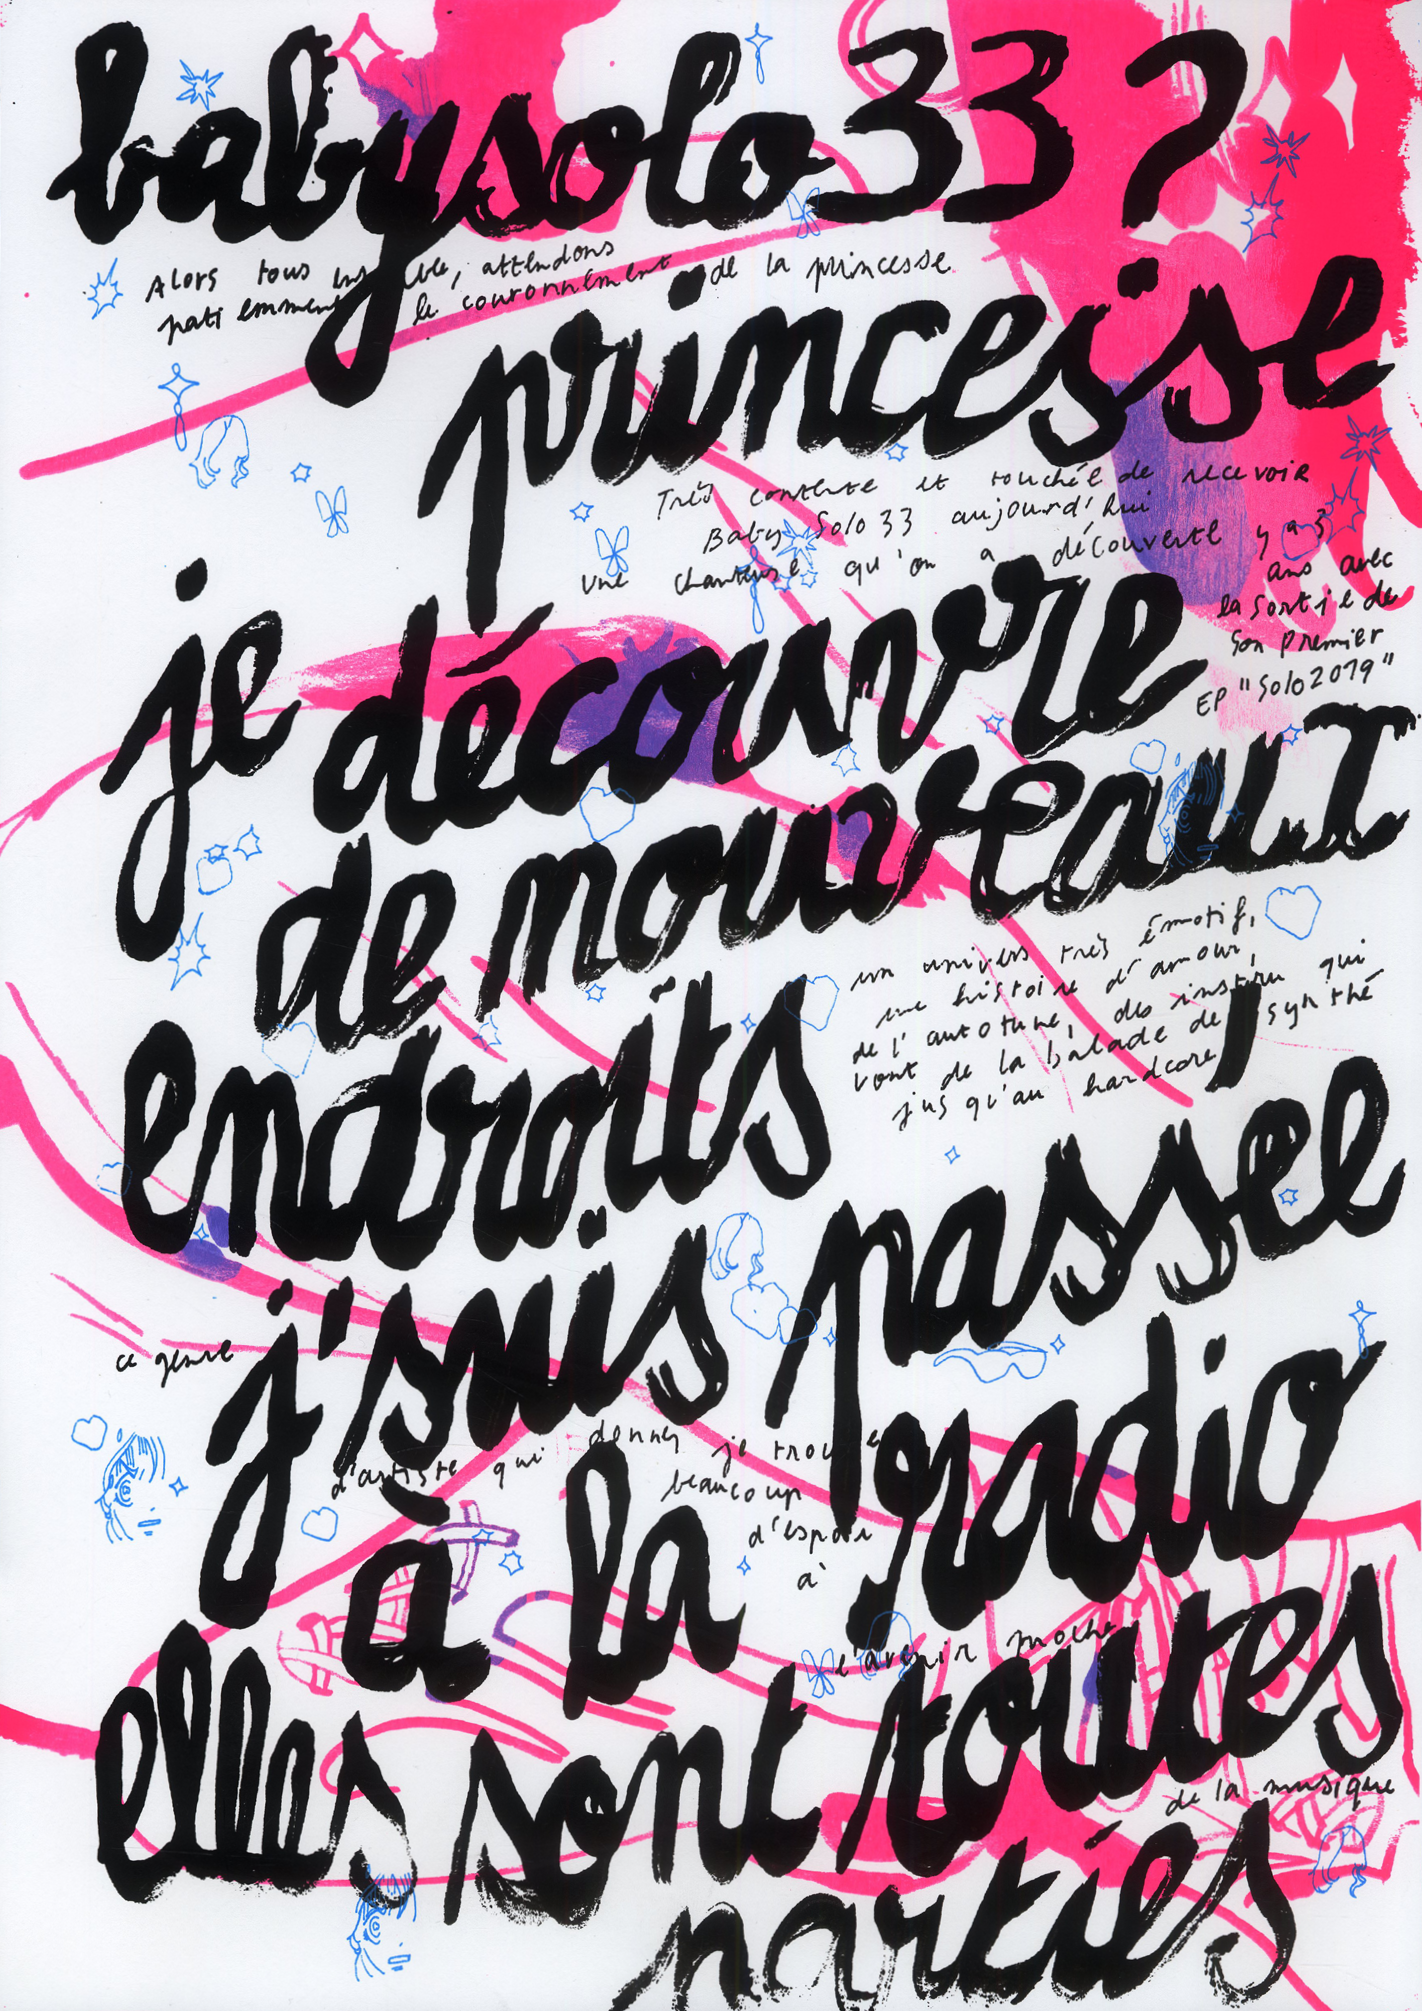 babysolo33?
Alors tous ensemble, attendons
patiemment le couronnement de la princesse
princesse
Très contente et touchée de recevoir
Baby Solo 33 aujourd'hui
une chanteuse qu'on a découverte y a 3
ans avec
la sortie de
son premier
EP "Solo2019"
je découvre
de nouveaux
un univers très émotif,
une histoire d'amour,
de l'autotune, des instru qui
vont de la balade de synthé
jusqu'au hardcore
endroits,
j'suis passée
ce genre
d'artiste qui donnes je trouve
beaucoup
d'espoir
à
à la radio
l'avenir proche
elles sont toutes
de la musique
parties